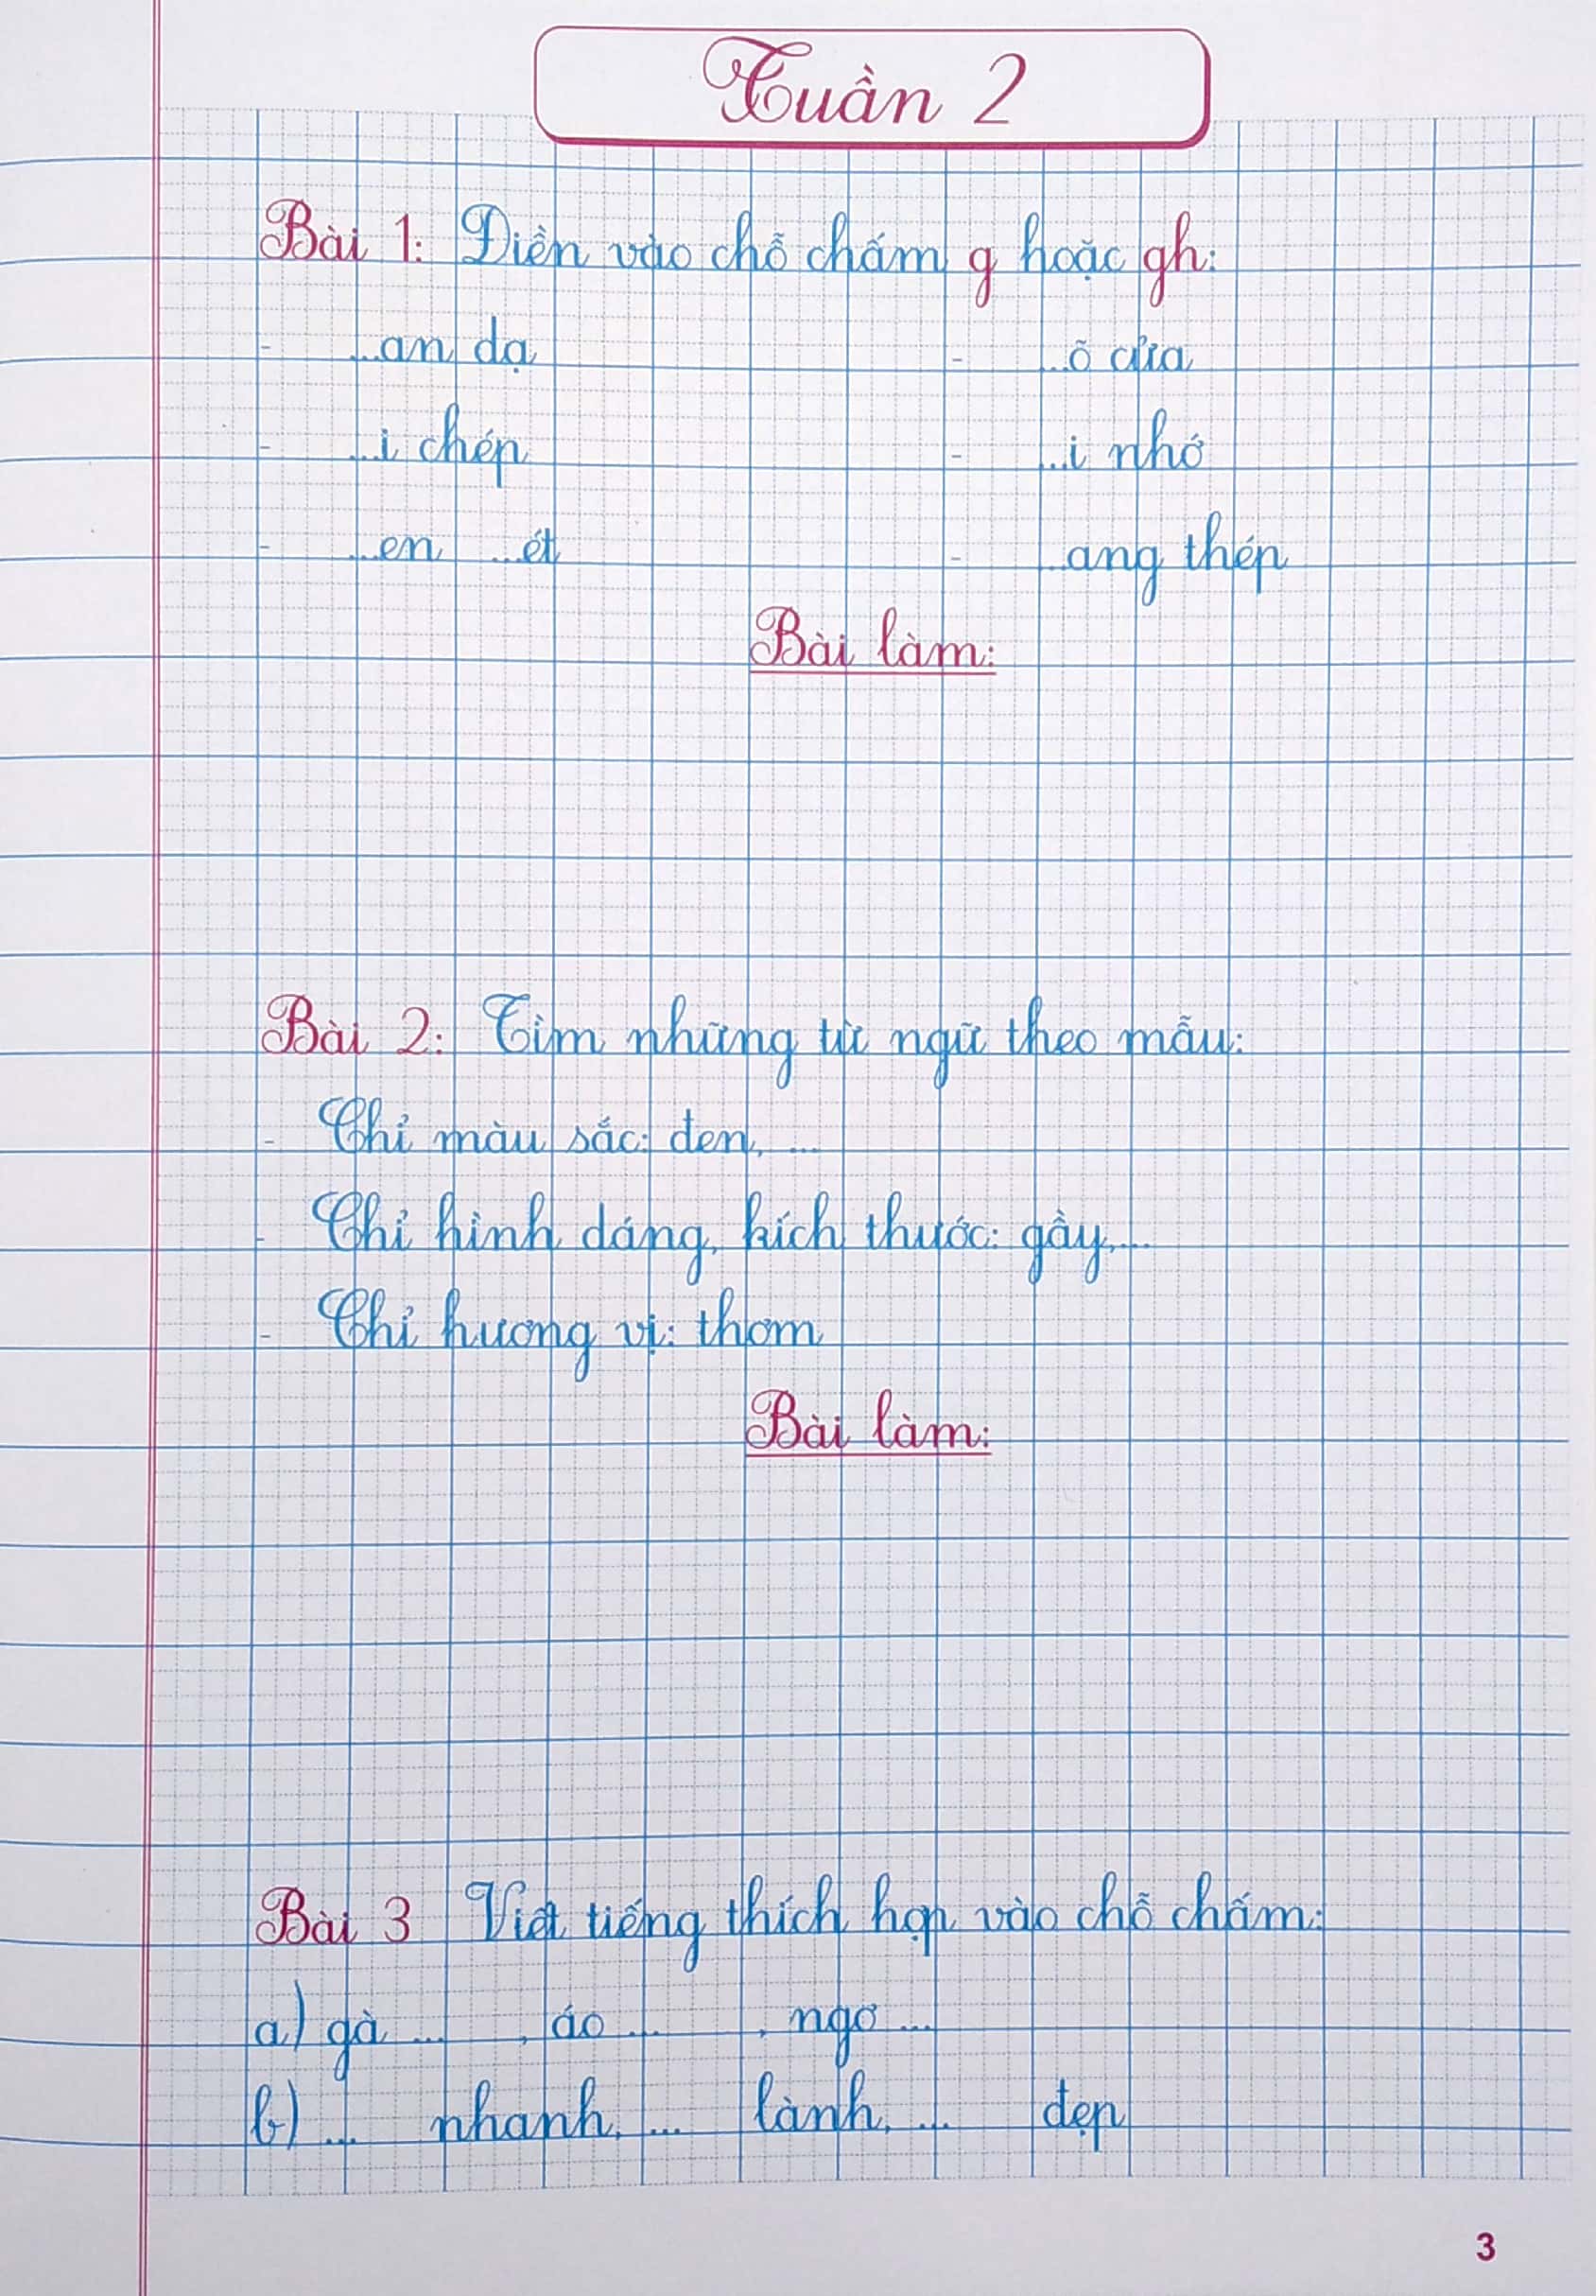 Tuần 2
Bài 1: Điền vào chỗ chấm g hoặc gh:
- ...an dạ - ...õ cửa
- ...i chép - ...i nhớ
- ...en ...ét - ...ang thép
Bài làm:
Bài 2: Tìm những từ ngữ theo mẫu:
- Chỉ màu sắc: đen, ...
- Chỉ hình dáng, kích thước: gầy,...
- Chỉ hương vị: thơm
Bài làm:
Bài 3 Viết tiếng thích hợp vào chỗ chấm:
a) gà ... , áo ... , ngơ ...
b) ... nhanh, ... lành, ... đẹp
3